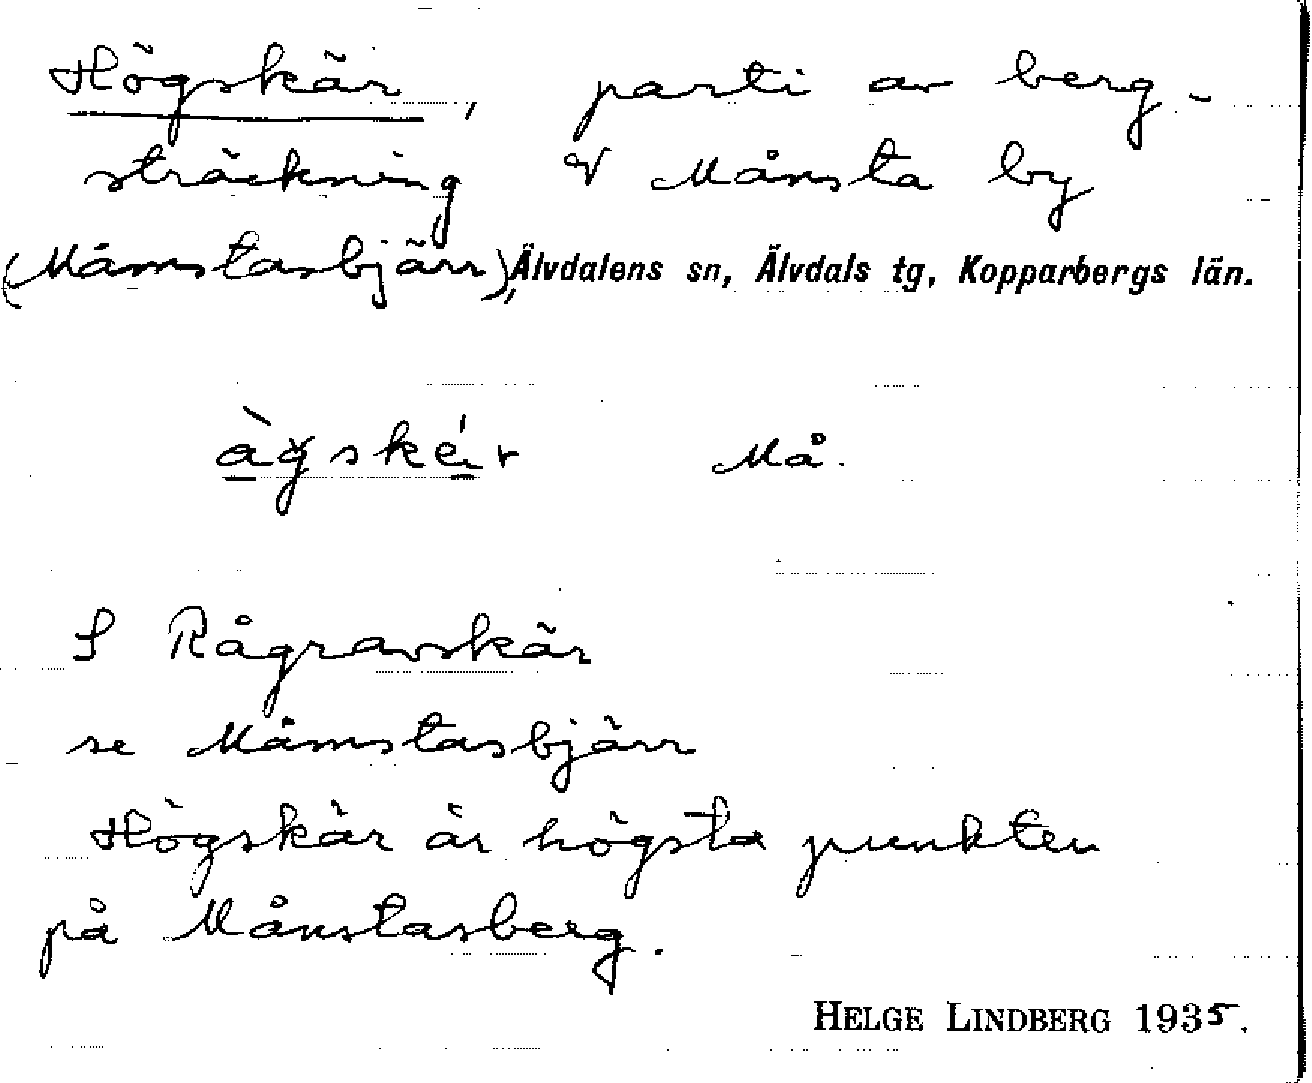 Högskär, parti av berg-
sträckning V Månsta by
(Månstasbjärr), Älvdalens sn, Älvdals tg, Kopparbergs län.
àgskér Må.
S Rågravskär
se Månstasbjärr
Högskär är högsta punkten
på Månstasberg.
HELGE LINDBERG 1935.